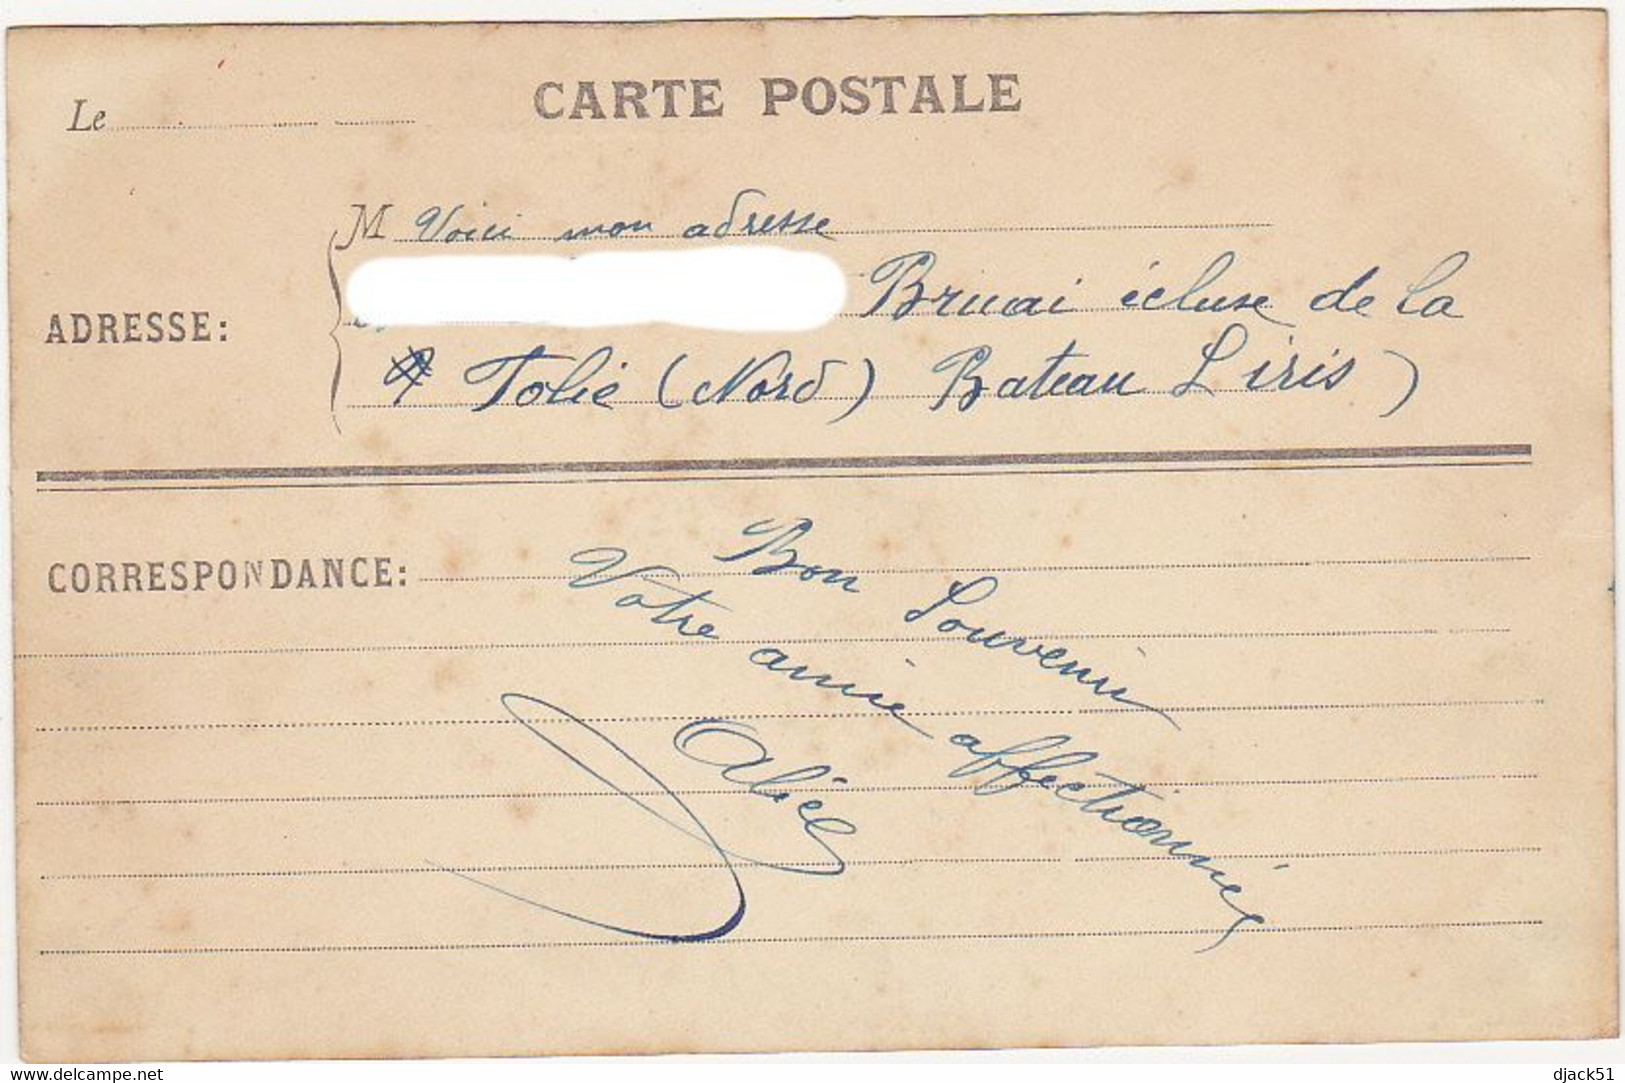 CARTE POSTALE
Le
M Voici mon adresse
ADRESSE:
Bruai écluse de la
Folie (Nord) Bateau L'iris)
CORRESPONDANCE:
Bon Souvenir
Votre amie affectionnée
Alice
www.delcampe.net
djack51